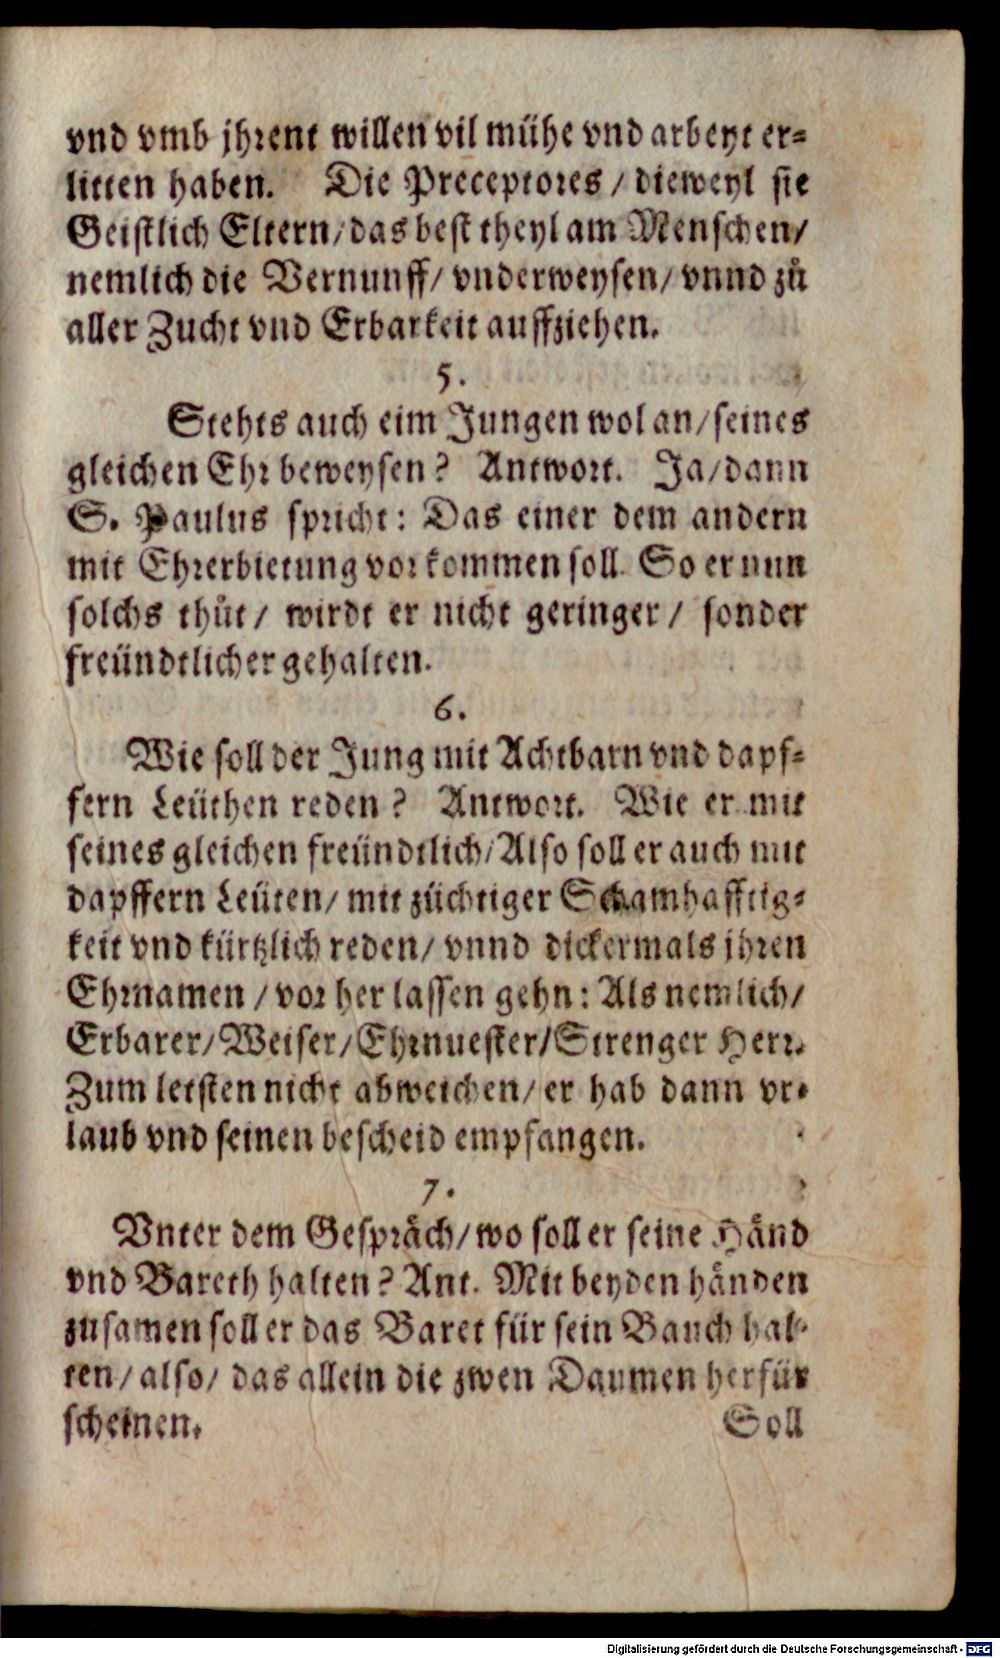 vnd vmb jhrent willen vil mühe vnd arbeyt er-
litten haben. Die Preceptores / dieweyl sie
Geistlich Eltern / das best theyl am Menschen /
nemlich die Vernunff / vnderweysen / vnnd zů
aller Zucht vnd Erbarkeit auffziehen.
5.
Stehts auch eim Jungen wol an / seines
gleichen Ehr beweysen? Antwort. Ja / dann
S. Paulus spricht: Das einer dem andern
mit Ehrerbietung vorkommen soll. So er nun
solchs thůt / wirdt er nicht geringer / sonder
freündtlicher gehalten.
6.
Wie soll der Jung mit Achtbarn vnd dapf-
fern Leüthen reden? Antwort. Wie er mit
seines gleichen freündtlich / Also soll er auch mit
dapffern Leüten / mit züchtiger Schamhafftig-
keit vnd kürtzlich reden / vnnd dickermals jhren
Ehrnamen / vor her lassen gehn: Als nemlich /
Erbarer / Weiser / Ehrnuester / Strenger Herr.
Zum letsten nicht abweichen / er hab dann vr-
laub vnd seinen bescheid empfangen.
7.
Vnter dem Gespräch / wo soll er seine Händ
vnd Bareth halten? Ant. Mit beyden händen
zusamen soll er das Baret für sein Bauch hal-
ten / also / das allein die zwen Daumen herfür
scheinen.
Soll
Digitalisierung gefördert durch die Deutsche Forschungsgemeinschaft - DFG